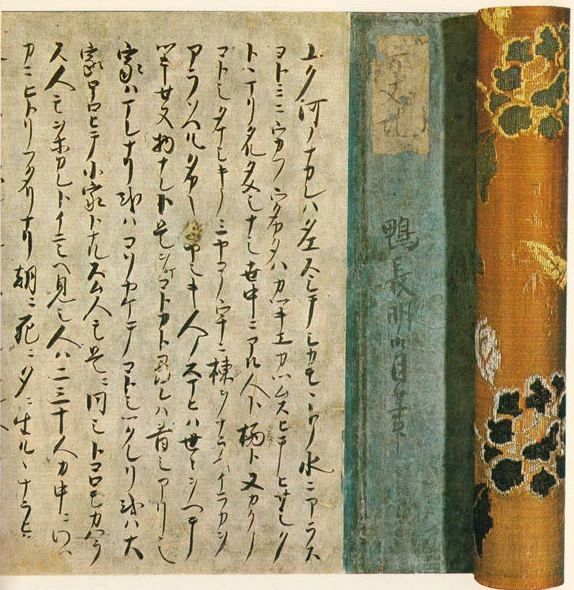 方丈記
鴨長明自筆
ユク河ノナカレハタエスシテシカモモトノ水ニアラス
ヨトミニウカフウタカタハカツキエカツムスヒテヒサシク
トヽマリタルタメシナシ世中ニアル人ト栖ト又カクノ
コトシタマシキノミヤコノウチニ棟ヲナラヘイラカヲ
アラソヘルタカキイヤシキ人ノスマヒハ世々ヲヘテ
ツキセヌ物ナレト是ヲマコトカト尋レハ昔シアリシ
家ハマレナリ或ハコソヤケテコトシツクレリ或ハ大
家ホロヒテ小家トナルスム人モ是ニ同シトコロモカハラ
ス人モヲホカレトイニシヘ見シ人ハ二三十人カ中ニワツ
カニヒトリフタリナリ朝ニ死ニ夕ニ生ルヽナラヒ